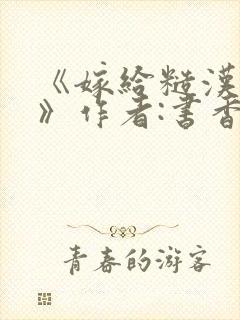 《嫁给糙漢
》作者:書香
青春的游客